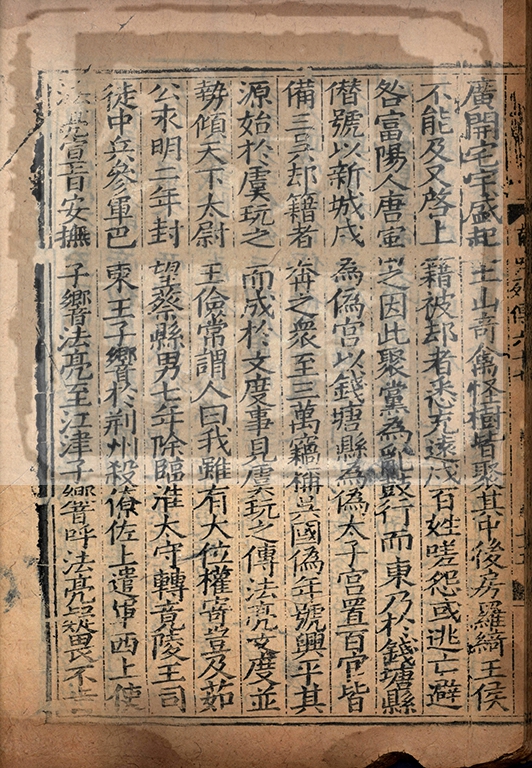 廣開宅宇盛起土山奇禽怪樹皆聚其中後房羅綺王侯
不能及又啓上籍被却者悉充遠戍百姓嗟怨或逃亡避
咎富陽人唐寓之因此聚黨為亂鼓行而東乃於錢塘縣
僭號以新城戍為偽宮以錢塘縣為偽太子宮置百官皆
備三吳却籍者奔之衆至三萬竊稱吳國偽年號興平其
源始於虞玩之而成於文度事見虞玩之傳法亮文度並
勢傾天下太尉王儉常謂人曰我雖有大位權寄豈及茹
公永明二年封望蔡縣男七年除臨淮太守轉竟陵王司
徒中兵參軍巴東王子響於荆州殺僚佐上遣軍西上使
法亮宣旨安撫子響法亮至江津子響呼法亮疑畏不